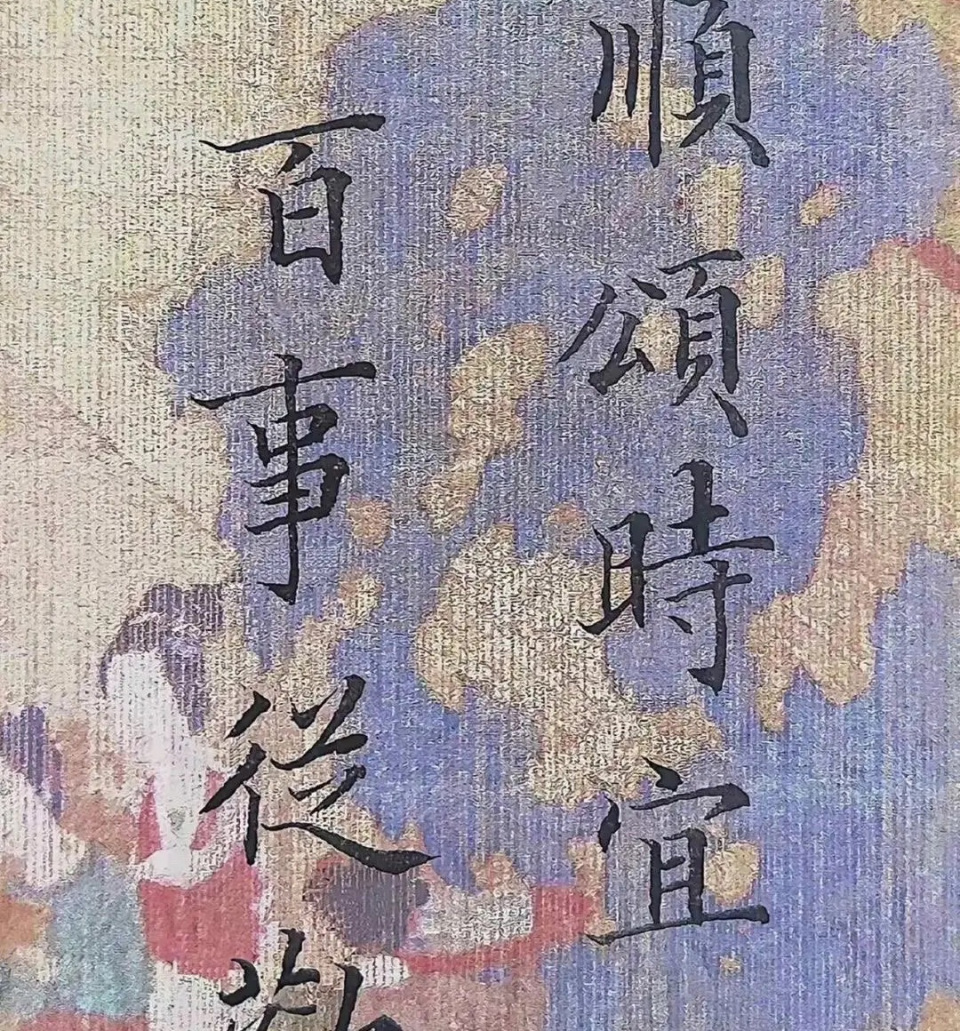 順頌時宜
百事従